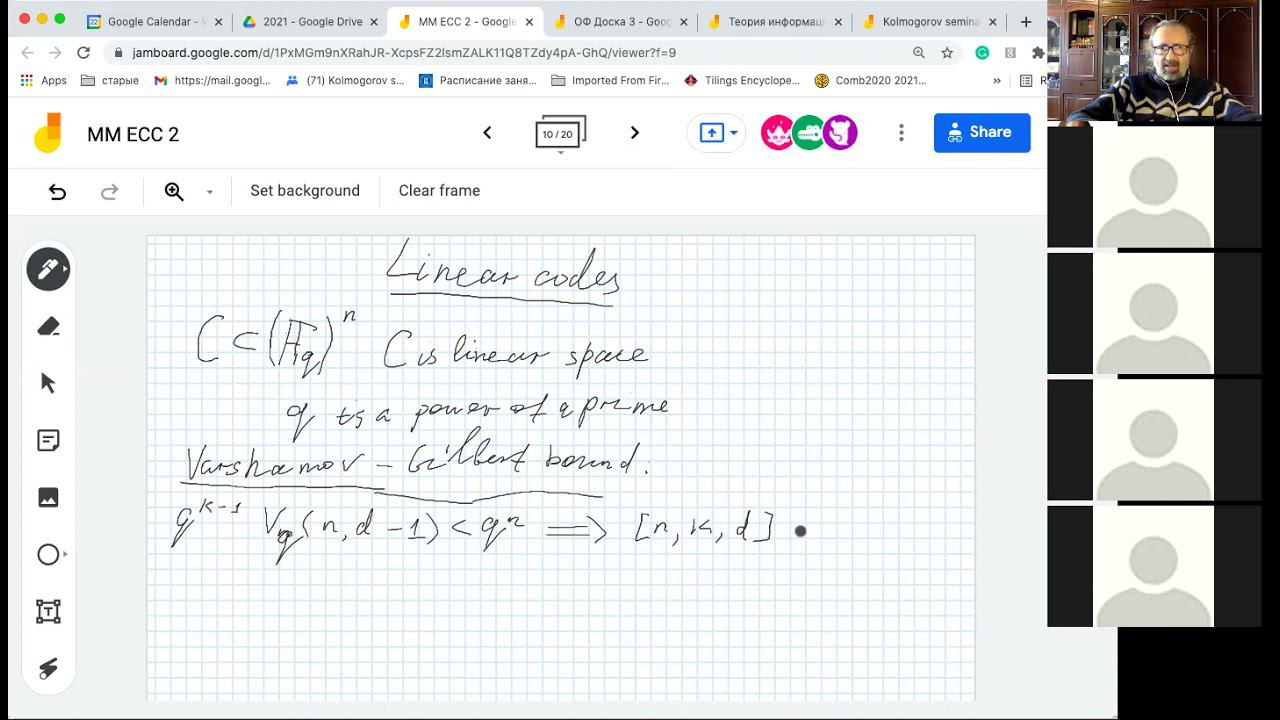 Google Calendar - V
2021 - Google Drive
MM ECC 2 - Google
ОФ Доска 3 - Goog
Теория информац
Kolmogorov semina
jamboard.google.com/d/1PxMGm9nXRahJR-XcpsFZ2lsmZALK11Q8TZdy4pA-GhQ/viewer?f=9
Apps старые https://mail.googl... (71) Kolmogorov s... Расписание заня... Imported From Fir... Tilings Encyclope... Comb2020 2021... » R
MM ECC 2
10 / 20
Share
Set background Clear frame
Linear codes
C ⊂ (F_q)^n C is linear space
q is a power of a prime
Varshamov - Gilbert bound:
q^{k-1} V_q(n, d-1) < q^n ⟹ [n, k, d]